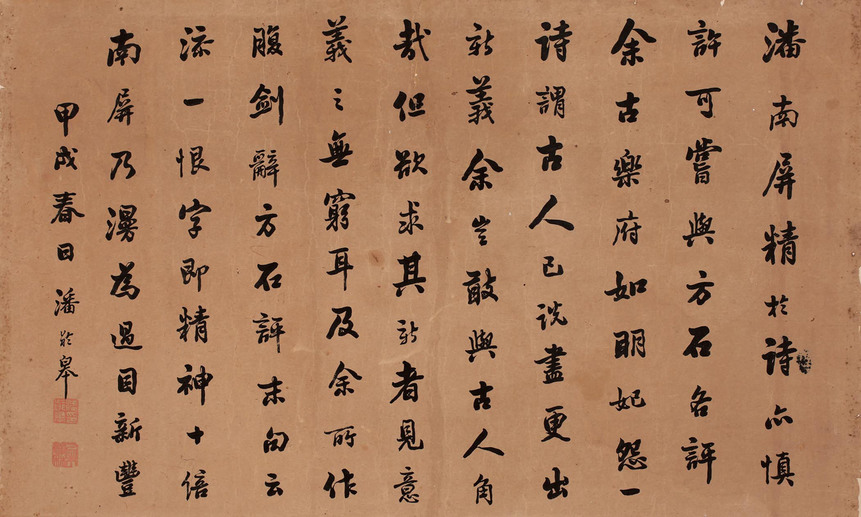 潘南屏精於詩亦慎
許可嘗與方石各評
余古樂府如明妃怨一
詩謂古人已説盡更出
新義余豈敢與古人角
哉但欲求其新者見意
義之無窮耳及余所作
腹劍辭方石評末句云
添一恨字即精神十倍
南屏乃漫為過目新豐
甲戌春日 潘齡皋